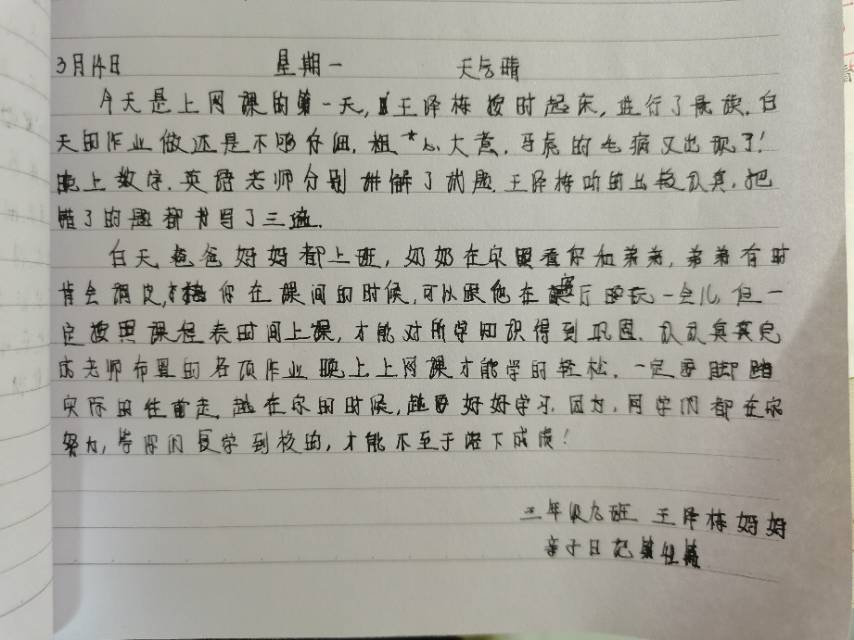 3月14日 星期一 天气晴
今天是上网课的第一天,王泽栋按时起床,进行了晨读.白
天的作业做还是不够仔细.粗心大意.马虎的毛病又出现了!
晚上数学.英语老师分别讲解了试题.王泽栋听的比较认真.把
错了的题都书写了三遍.
白天爸爸妈妈都上班,奶奶在家里看你和弟弟,弟弟有时
肯会调皮,你在课间的时候,可以跟他在客厅里玩一会儿.但一
定按照课程表时间上课,才能对所学知识得到巩固.认认真真完
成老师布置的各项作业晚上上网课才能学的轻松.一定要脚踏
实际的往前走.越在家的时候,越要好好学习.因为.同学们都在家
努力,等你们复学到校的,才能不至于落下成绩!
三年级九班 王泽栋妈妈
亲子日记